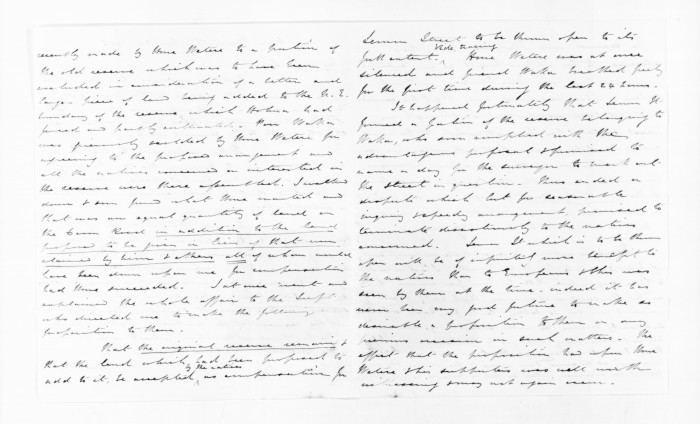 recently made by Hone Watere to a portion of
the old reserve which was to have been
excluded in consideration of a better and
large piece of land being added to the N.E.
boundary of the reserve, which Hohua had
fenced and partly cultivated. Poor Waka
was previously scolded by Hone Watere for
agreeing to the proposed arrangement and
all the natives concerned or interested in
the reserve were there assembled. I walked
down & soon found what Hone wanted and
that was an equal quantity of land on
the Town Road in addition to the land
proposed to be given in lieu of that now
claimed by him & others all of whom would
have been down upon me for compensation
had Hone succeeded. I at once went and
explained the whole affair to the Supt
who directed me to make the following
proposition to them.
That the original reserve remains &
that the land which had been proposed to
add to it, be accepted by the natives as compensation for
Street to be thrown open to its
full extent. Vide tracing Hone Watere was at once
silenced and friend Waka breathed freely
for the first time during the last 24 hours.
It happened fortunately that St
formed a portion of the reserve belonging to
Waka, who soon complied with the
advantageous proposal & promised to
name a day for the surveyor to mark out
the street in question. Thus ended a
dispute which but for seasonable
inquiry & speedy arrangement promised to
terminate disastrously to the natives
concerned. St which is to be thrown
open will be of infinitely more benefit to
the natives than to Europeans & this was
seen by them at the time. indeed it has
never been my good fortune to make so
desirable a proposition to them on any
previous occasion in such matters. The
effect that the proposition had upon Hone
Watere & his supporters was well worth
witnessing & may not again occur.